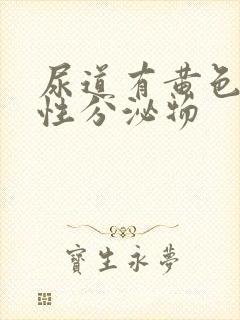 尿道有黄色
性分泌物
寶生永夢